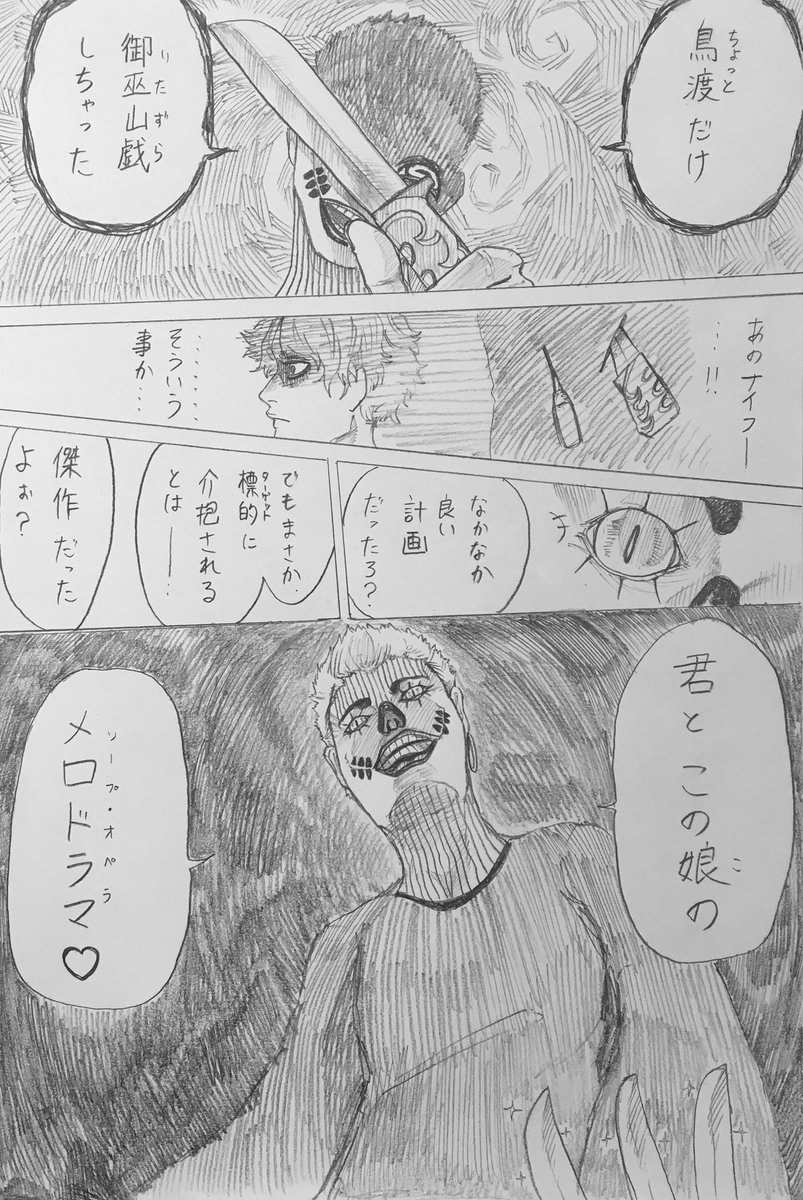 ちょっと
鳥渡だけ
いたずら
御巫山戯
しちゃった
あのナイフー
…!!
……
そういう
事か…
チ
なかなか
良い
計画
だったろ?
でもまさか
ターゲット
標的に
介抱される
とは――…
傑作だった
よぉ?
君とこの娘の
こ
ソープ・オペラ
メロドラマ♡